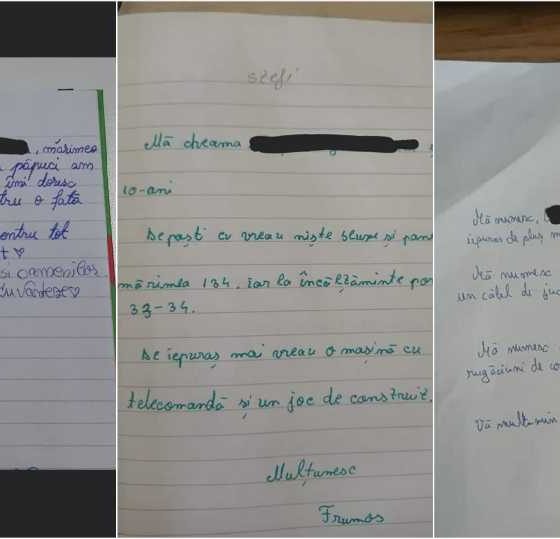 , mărimea
păpuci am
îmi doresc
tru o fată
entru tot
t ♡
si oamenilor
ștefi
Mă cheama
10-ani
De paști eu vreau niște bluze și pan
mărimea 134. iar la încălțăminte por
33-34.
De iepuraș mai vreau o mașină cu
telecomandă și un joc de construit.
Mulțumesc
Frumos
Mă numesc,
iepuraș de pluș m
Mă numesc
un cățel de juc
Mă numesc
rugăciuni de co
Vă mulțumim